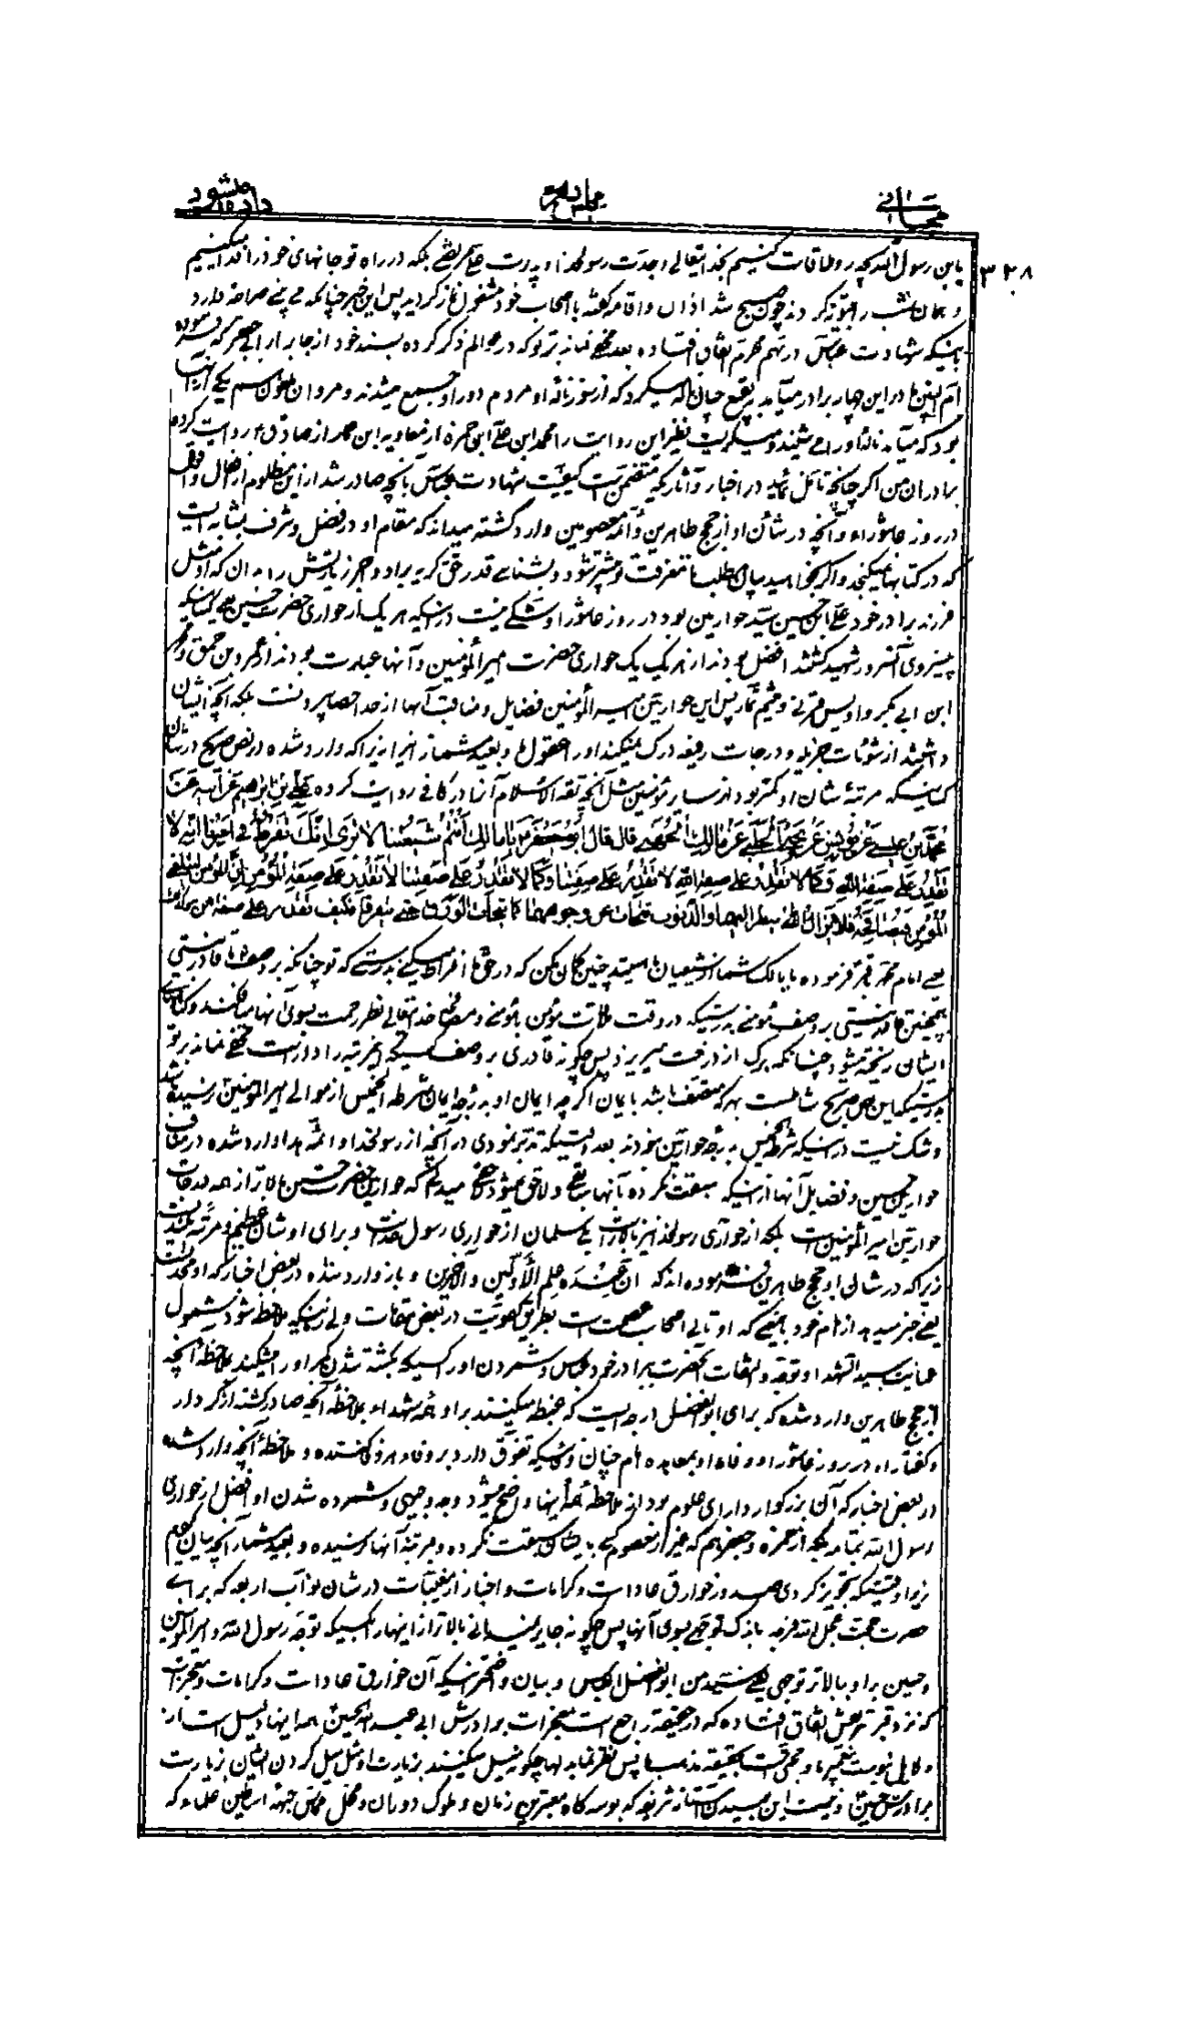 مجلس دهم
۳۲۸
یابن رسول الله بچه رو ملاقات کنیم بخدایتعالی وجدت رسولخدا و پدرت علی مرتضی بلکه در راه تو جانهای خود را فدا میکنیم
و همان شب را کردند چون صبح شد اذان و اقامه گفته با اصحاب خود مشغول نماز گردید پس این خبر چنانکه می بینی صراحة دارد
باینکه شهادت عباس در نهم محرم اتفاق افتاده بعد مخفی نماند بر تو که در عوالم ذکر کرده بسند خود از جابر از ابی جعفر که فرموده
ام البنین مادر این چهار برادر میآمد به بقیع چنان ناله میکرد که از سوز ناله او مردم دور او جمع میشدند و مروان ملعون هم یکی از آنها
بود که میآمد ناله او را می شنید و میگریست نظیر این روایت را محمد ابن علی ابن حمزه از معاویه ابن عمار از صادق ع روایت کرده
برادران من اگر چنانچه تامل نمائید در اخبار و آثاریکه متضمن است کیفیت شهادت عباس بآنچه صادر شد از این مظلوم از افعال و اقوال
در روز عاشوراء و آنچه در شان او از حجج طاهرین و ائمه معصومین وارد گشته میداند که مقام او در فضل و شرف بمثابه ایست
که در کتابها نمیگنجد و اگر بخواهید بیان مطلب تا معرفت تو بیشتر شود و بشناسی قدر حق گریه بر او و اجر زیارتش را بدان که او مثل
فرزند برادر خود علی ابن حسین سید حواریین بود در روز عاشورا و شکی نیست در اینکه هر یک از حواری حضرت حسین یعنی کسانیکه
پیش روی آنسرور شهید گشتند افضل بودند از هر یک یک حواری حضرت امیرالمؤمنین و آنها عبارت بودند از عمرو بن حمق و محمد
ابن ابی بکر و اویس قرنی و میثم تمار پس این حواریین امیرالمؤمنین فضایل و مناقب آنها از حد احصا بیرونست بلکه آنچه ایشان
داشتند از شئونات جزیله و درجات رفیعه درک نمیکند او را عقول ما و بعید مشمار از زیرا که وارد شده در نص صریح در شان
کسانیکه مرتبه شان از او کمتر بودند از سایر مؤمنین مثل آنچه ثقة الاسلام آنرا در کافی روایت کرده علی بن ابراهیم عن ابیه عن
محمد بن عیسی عن یونس عن یحیی الحلبی عن مالک الجهنی قال قال ابو جعفر یا مالک انتم شیعتنا لا تری انک تفرط فی امرنا انه لا
تقدر علی صفة الله فکما لا تقدر علی صفة الله لا تقدر علی صفتنا و کما لا تقدر علی صفتنا لا تقدر علی صفة المؤمن ان المؤمن لیلقی
المؤمن فیصافحه فلا یزال الله ینظر الیهما والذنوب تتحات عن وجوههما کما یتحات الورق حتی یتفرقا فکیف تقدر علی صفة من هو کذلک
یعنی امام محمد باقر فرموده یا مالک شما از شیعیان ما هستید چنین گمان مکن که در حق ما افراط میکنی بدرستیکه تو چنانکه بر وصف ما قادر نیستی
همچنین قادر نیستی بر وصف مؤمن بدرستیکه در وقت ملاقات مؤمن با مؤمنی و مصافحه خدایتعالی نظر رحمت بسوی آنها میافکند و گناهان
ایشان ریخته میشود چنانکه برگ از درخت میریزد پس چگونه قادری بر وصف کسیکه این مرتبه را داراست مخفی نماند بر تو
بدرستیکه این نص صریح شاملست بهر که متصف باشد بایمان اگر چه ایمان او بدرجه ایمان شرطه الخمیس از موالی امیرالمؤمنین نرسیده باشد
و شک نیست در اینکه شرطة الخمیس بدرجه حواریین نبودند بعد اینکه تدبر نمودی در آنچه از رسولخدا و ائمه هدا وارد شده در مناقب
حواری حسین و فضایل آنها از اینکه سبقت نکرده بآنها سابقی و لاحق نمیشود میدانی که حواریین حضرت حسین بالاتر از همه طبقات
حواریین امیرالمؤمنین است بلکه از حواری رسولخدا نیز بالاتر است بلی سلمان از حواری رسول خداست و برای او شان عظیم و مرتبه بلندیست
زیرا که در شان او حجج طاهرین فرموده اند که ان عنده علم الاولین و الاخرین و باز وارد شده در بعض اخبار که او محدث است
یعنی خبر میدهد از امام خود باینمعنی که او تالی اصحاب عصمت است بطریق کلویت در بعض مقامات ولی زمانیکه ملاحظه شود شمول
عنایت سید الشهدا و توجه و التفات آنحضرت ببرادر خود عباس و شمردن او را کسیکه بکشته شدن کمر او را میشکند و ملاحظه آنچه
از حجج طاهرین وارد شده که برای ابوالفضل درجه ایست که غبطه میکنند بر او همه شهداء و ملاحظه آنچه صادر گشته از کردار
و گفتار او در روز عاشورا و وفاء او بمعاهده امام چنان وفائیکه تفوق دارد بر وفاء هر وفا کننده و ملاحظه آنچه وارد شده
در بعض اخبار که آن بزرگوار دارای علوم بود از ملاحظه همه اینها واضح میشود وجه وجیهی و شمرده شدن او افضل از حواری
رسول الله بتمامه بلکه از حمزه و جعفر هم که غیر از معصوم کسی بایشان سبقت نکرده و بمرتبه آنها نرسیده و بعید مشمار آنچه بیان کردیم
زیرا وقتیکه تجویز کردی صدور خوارق عادات و کرامات و اخبار از مغیبات در شان نواب اربعه که برای
حضرت حجت عجل الله فرجه باندک توجهی بسوی آنها پس چگونه جایز نمیدانی بالاتر از اینها را بکسیکه توجه رسول الله و امیرالمؤمنین
و حسین بر او بالاتر توجهی یعنی سید من ابوالفضل العباس و بیان واضحتر اینکه آن خوارق عادات و کرامات و معجزات
که نزد قبر شریفش اتفاق افتاده که در حقیقت راجع است بمعجزات برادرش ابی عبدالله الحسین همه اینها دلیل است از
برادرش حسین و نیست این مگر آستانه شریفه که بوسه گاه معتبرین زمان و ملوک دوران و محل تماس جبهه اساطین علماء که